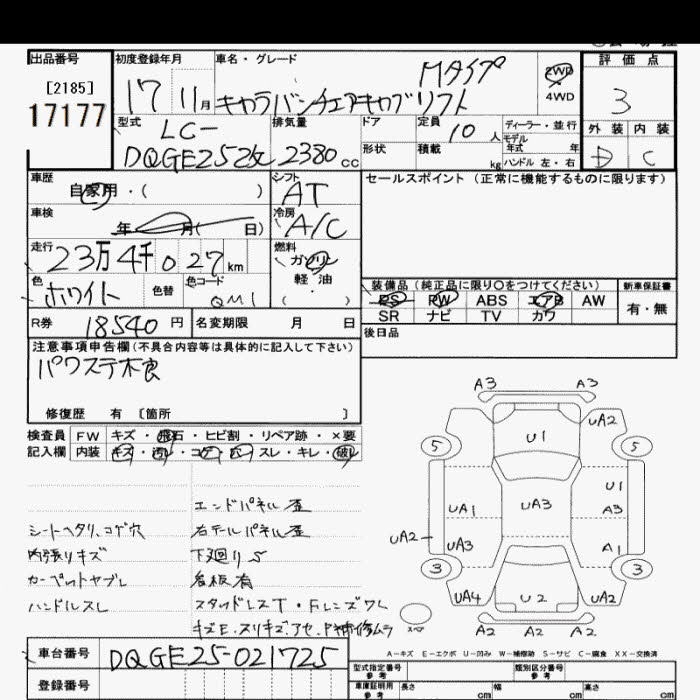 出品番号 初度登録年月 車名・グレード 評価点
[2185] 17177 17 11月 キャラバンチェアキャブリフト Mタイプ 2WD 4WD 3
型式 LC- DQGE25改 排気量 2380cc ドア 定員 10人 ディーラー・並行 外装 内装
形状 積載 kg モデル年式 年 ハンドル 左・右 D C
車歴 自家用・( ) シフト AT セールスポイント (正常に機能するものに限ります)
車検 年 月( 日) 冷房 A/C
走行 23万4千027km 燃料 ガソリン 軽・油 ( )
色 ホワイト 色替 色コード QM1
装備品 (純正品に限り○をつけてください) 新車保証書
PS PW ABS エアB AW 有・無
SR ナビ TV カワ
R券 18540円 名変期限 月 日 後日品
注意事項申告欄(不具合内容等は具体的に記入して下さい)
パワステ不良
修復歴 有 〔箇所 〕
検査員 FW キズ・飛石・ヒビ割・リペア跡・×要
記入欄 内装 キズ・汚レ・コゲ・穴・スレ・キレ・破レ
エンドパネル歪
シートヘタリ、コゲ穴 右テールパネル歪
内張りキズ 下廻りS
カーペットヤブレ 看板有
ハンドルスレ スタッドレスT・Fレンズワレ
キズE、スリキズ、アセ、P補修ムラ
A3 A3
UA2
5 U1 5
U1
UA1 UA3 A3
UA2 UA3 A1
3 3
UA4 U2 UA2
スペア A2 A2 A2
A-キズ E-エクボ U-凹み W-補修跡 S-サビ C-腐食 XX-交換済
車台番号 DQGE25-021725 型式指定番号 参考 類別区分番号 参考
登録番号 車庫証明用 参考 長さ cm 幅 cm 高さ cm